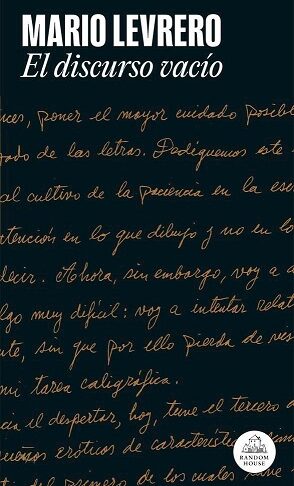 MARIO LEVRERO
El discurso vacío
ces, poner el mayor cuidado posibl
zado de las letras. Dediquemos este
al cultivo de la paciencia en la esc
atención en lo que dibujo y no en lo
decir. Ahora, sin embargo, voy a
lgo muy difícil: voy a intentar relat
te, sin que por ello pierda de
mi tarea caligráfica.
cia el despertar, hoy, tuve el tercero
sueños eróticos de característic
el primero de los cuales tuve
RANDOM
HOUSE